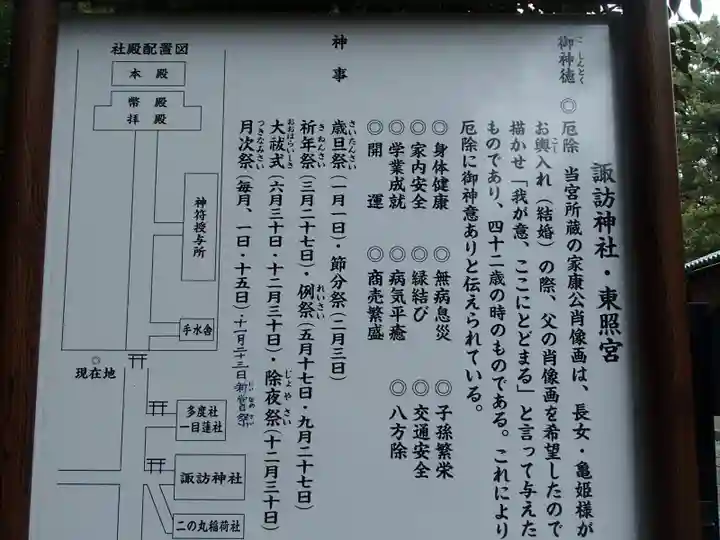 諏訪神社・東照宮
御神徳
ごしんとく
◎厄除 当宮所蔵の家康公肖像画は、長女・亀姫様が
お輿入れ（結婚）の際、父の肖像画を希望したので
こし
描かせ「我が意、ここにとどまる」と言って与えた
ものであり、四十二歳の時のものである。これにより
厄除に御神意ありと伝えられている。
◎身体健康 ◎無病息災 ◎子孫繁栄
◎家内安全 ◎縁結び ◎交通安全
◎学業成就 ◎病気平癒 ◎八方除
◎開運 ◎商売繁盛
神事
歳旦祭（一月一日）・節分祭（二月三日）
さいたんさい
祈年祭（三月二十七日）・例祭（五月十七日・九月二十七日）
きねんさい れいさい
大祓式（六月三十日・十二月三十日）・除夜祭（十二月三十日）
おおはらいしき じょやさい
月次祭（毎月、一日・十五日）・十一月二十三日新嘗祭
つきなみさい
社殿配置図
本殿
幣殿
拝殿
神符授与所
手水舎
◎
現在地
多度社
一目蓮社
諏訪神社
二の丸稲荷社